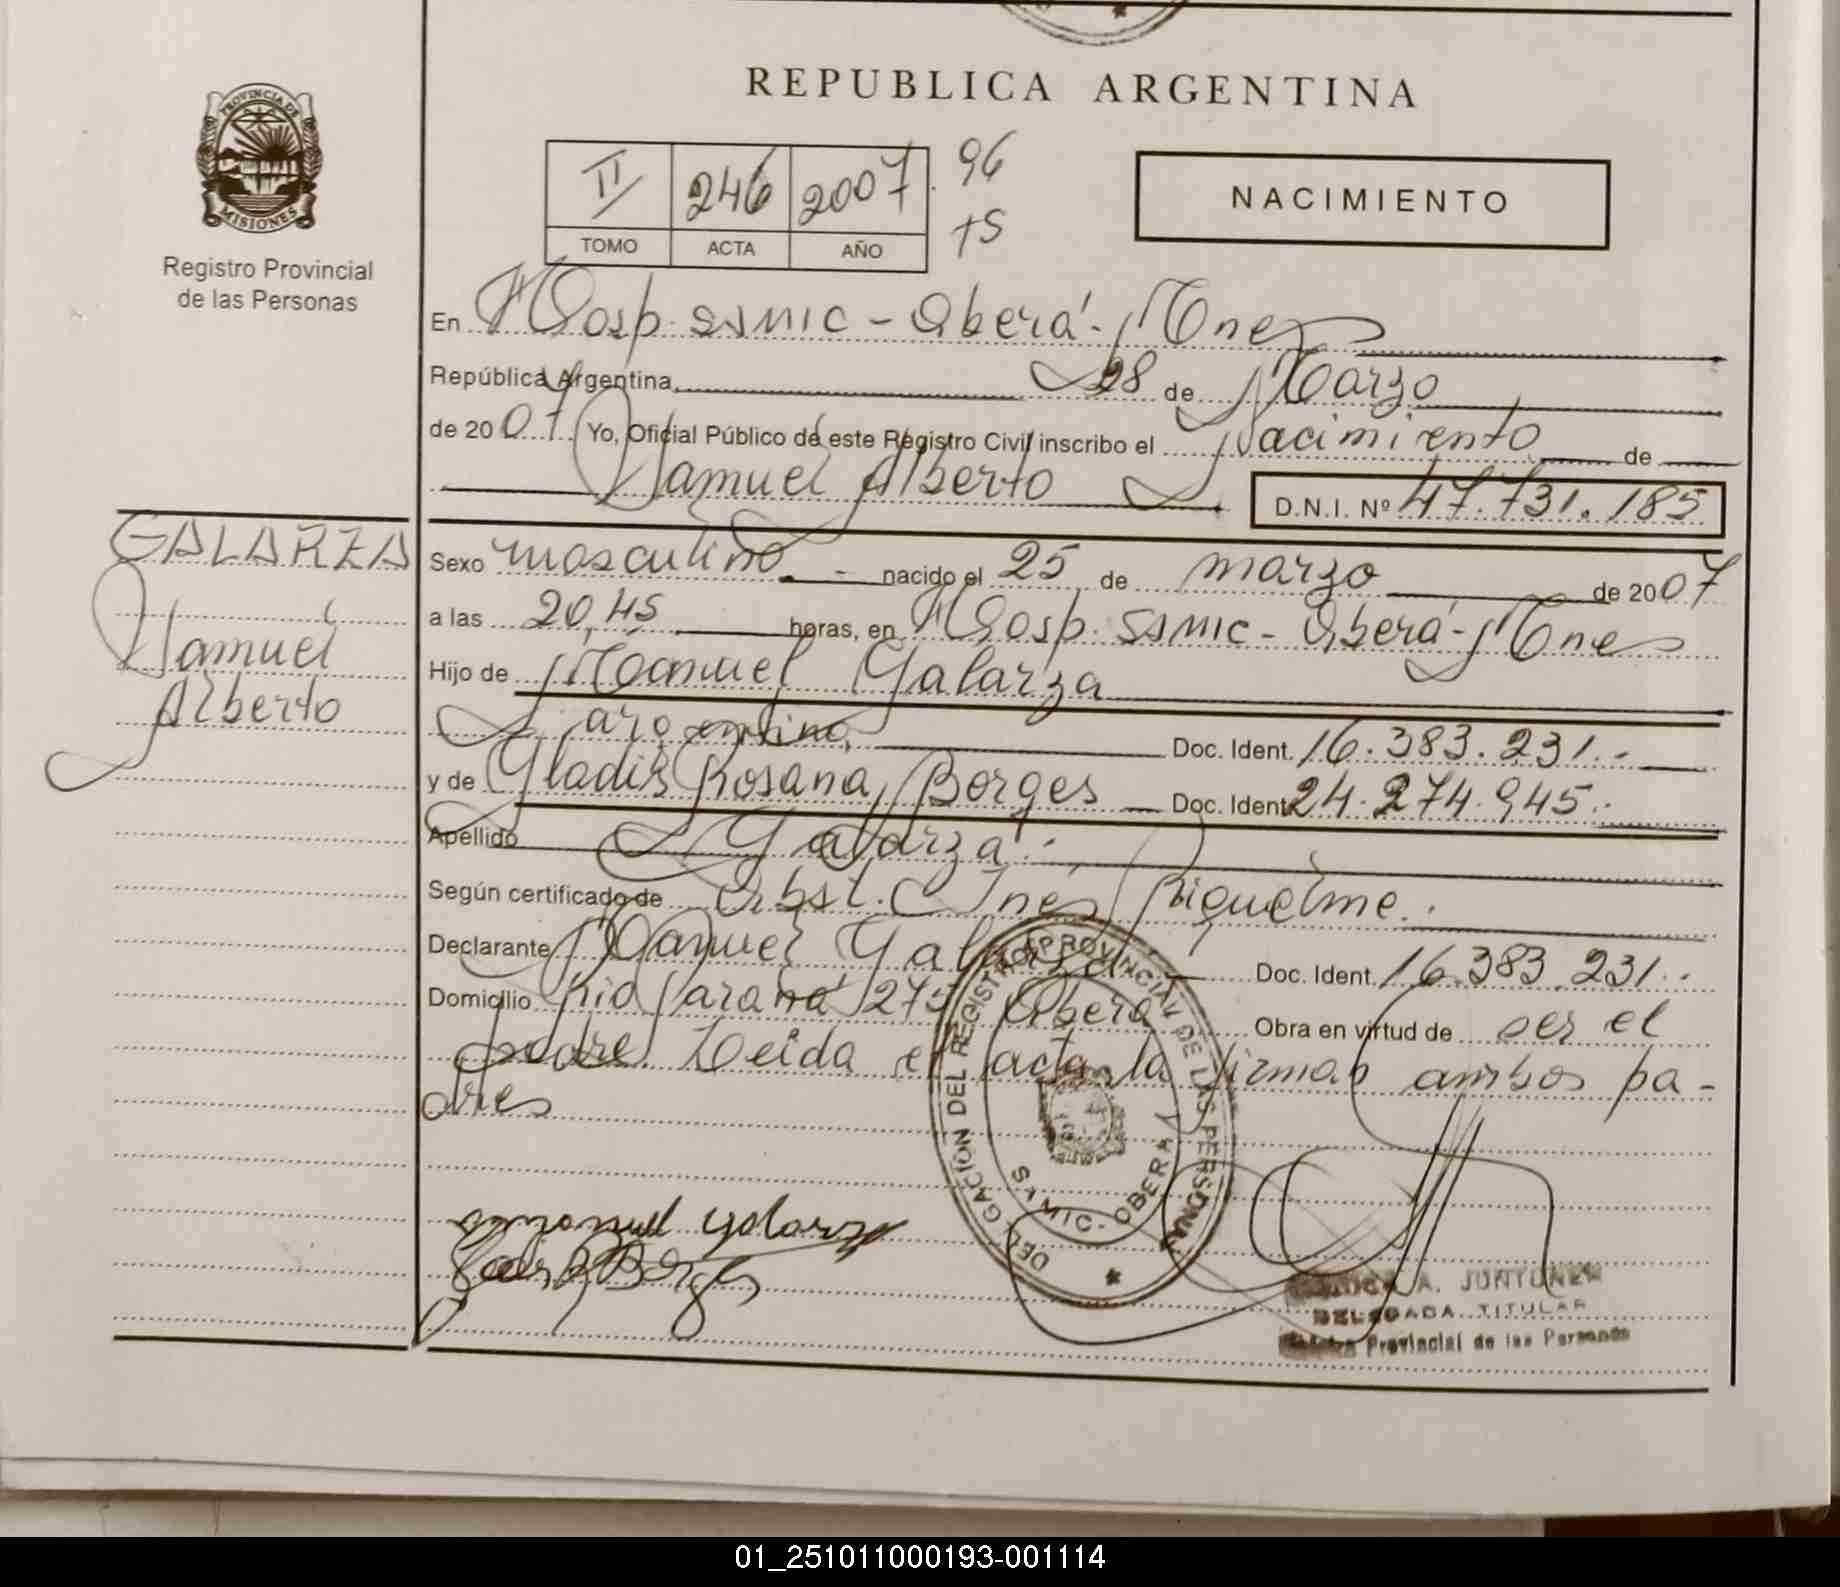 REPUBLICA ARGENTINA
PROVINCIA DE
MISIONES
Registro Provincial
de las Personas
II 246 2007 96
TS
TOMO ACTA AÑO
NACIMIENTO
En Hosp. SSMIC - Oberá - Mnes
República Argentina, 28 de Marzo
de 2007 Yo, Oficial Público de este Registro Civil inscribo el Nacimiento de
Samuel Alberto D.N.I. Nº 47.731.185
GALARZA
Samuel
Alberto
Sexo masculino - nacido el 25 de marzo de 2007
a las 20,45 horas, en Hosp. SSMIC - Oberá - Mnes
Hijo de Manuel Galarza
argentino Doc. Ident. 16.383.231.-
y de Gladis Rosana Borges Doc. Ident. 24.274.945.
Apellido Galarza.
Según certificado de Obst. Inés Riquelme.
Declarante Manuel Galarza Doc. Ident. 16.383.231.
Domicilio Rio Parana 275 Oberá Obra en virtud de ser el
padre. Leida el acta la firman ambos pa-
dres
DELEGACION DEL REGISTRO PROVINCIAL DE LAS PERSONAS
MIC - OBERA
Manuel Galarza
Borges
A. JUNTUNEN
DELEGADA TITULAR
Provincial de las Personas
01_251011000193-001114